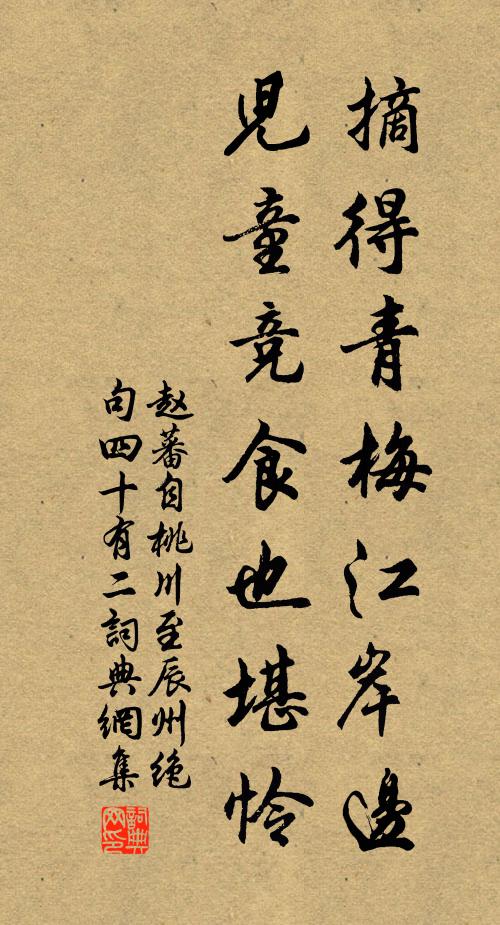 摘得青梅江岸邊
児童竞食也堪怜
赵蕃自桃川至辰州绝
句四十有二詞典網集
詞典
网印